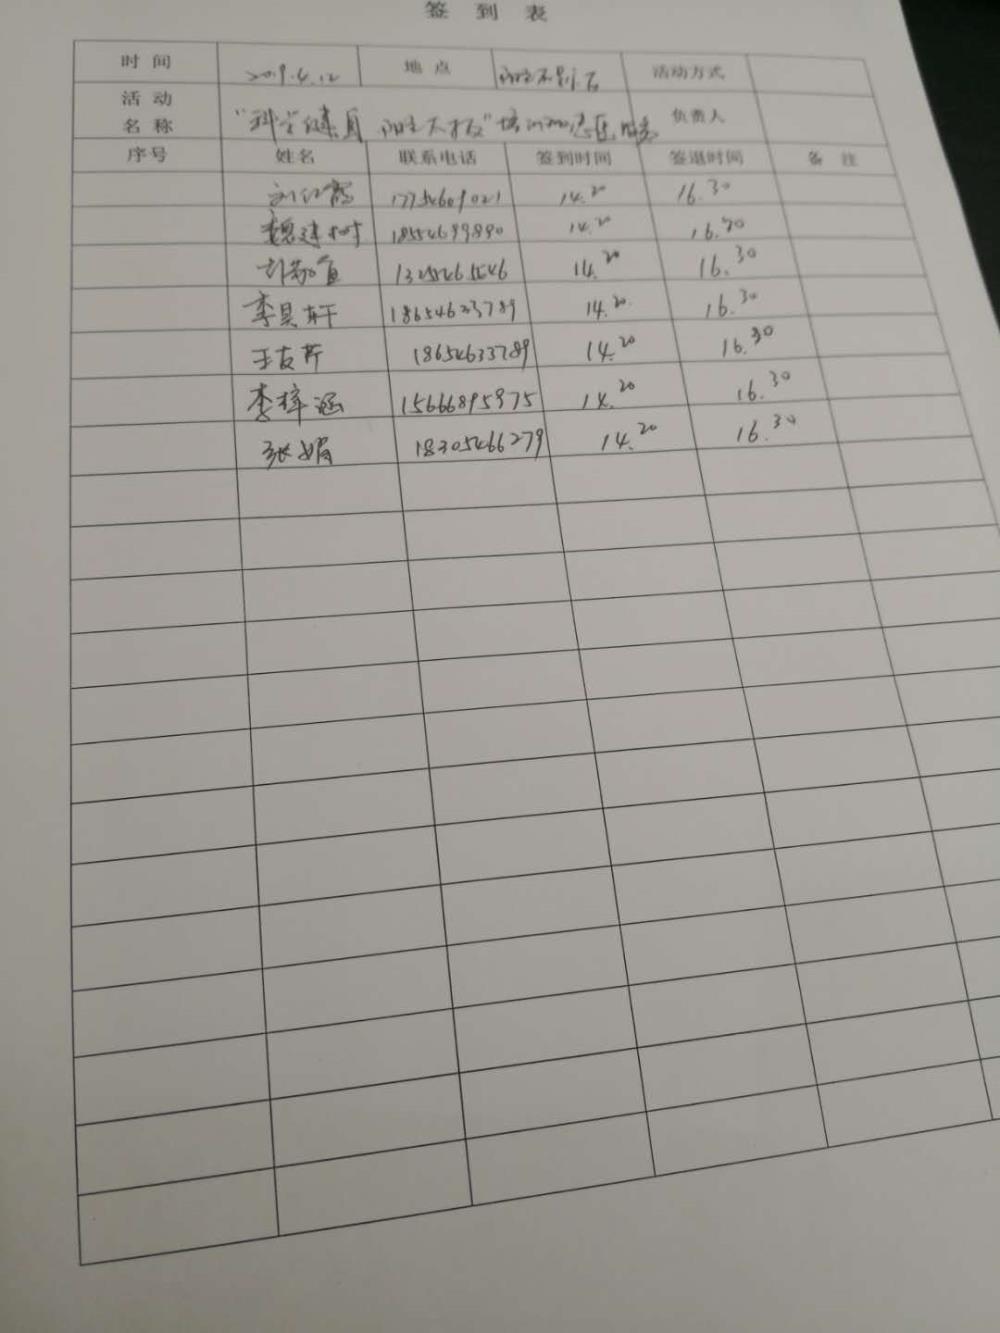 签到表
时间 2019.4.12 地点 活动方式
活动名称 "科学健身 阳光 负责人
序号 姓名 联系电话 签到时间 签退时间 备注
刘红霞 17754609021 14.20 16.30
魏建树 18554699890 14.20 16.30
13255465646 14.20 16.30
李昊轩 18654633789 14.20 16.30
王友芹 18654633789 14.20 16.30
李梓涵 15666895975 14.20 16.30
张娟 18305466279 14.20 16.30